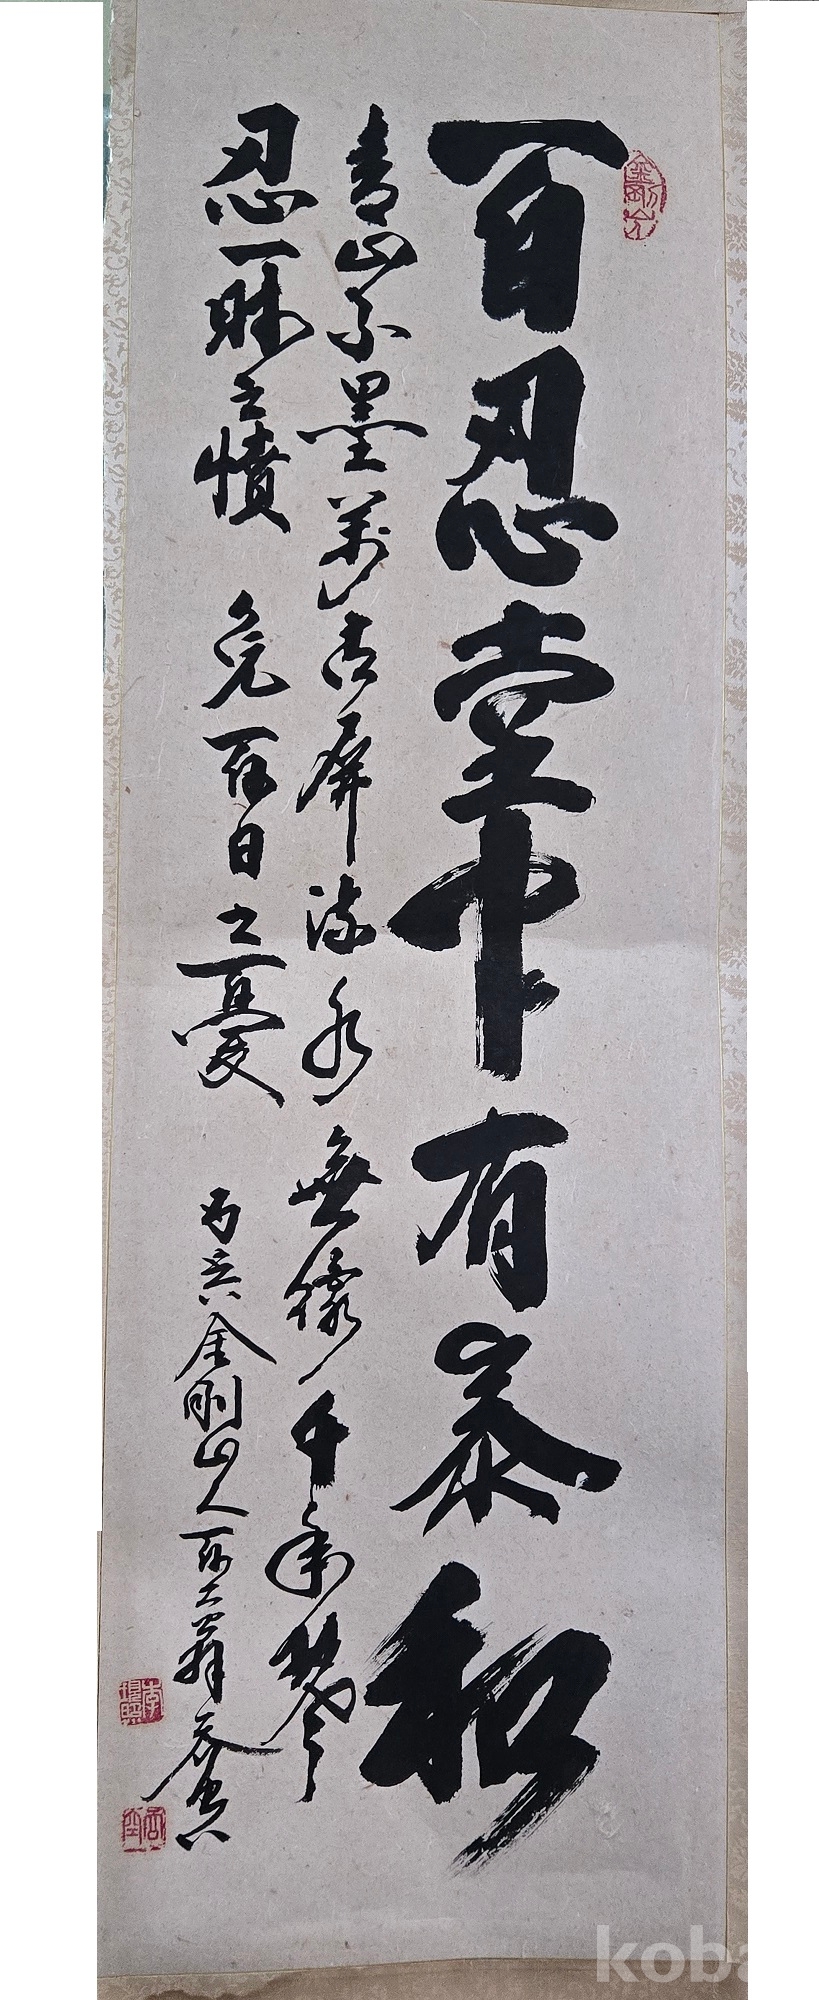 百忍堂中有泰和
青山不墨萬古屏流水無絃千年琴
忍一時之憤 免百日之憂
金剛山人百六翁
koba